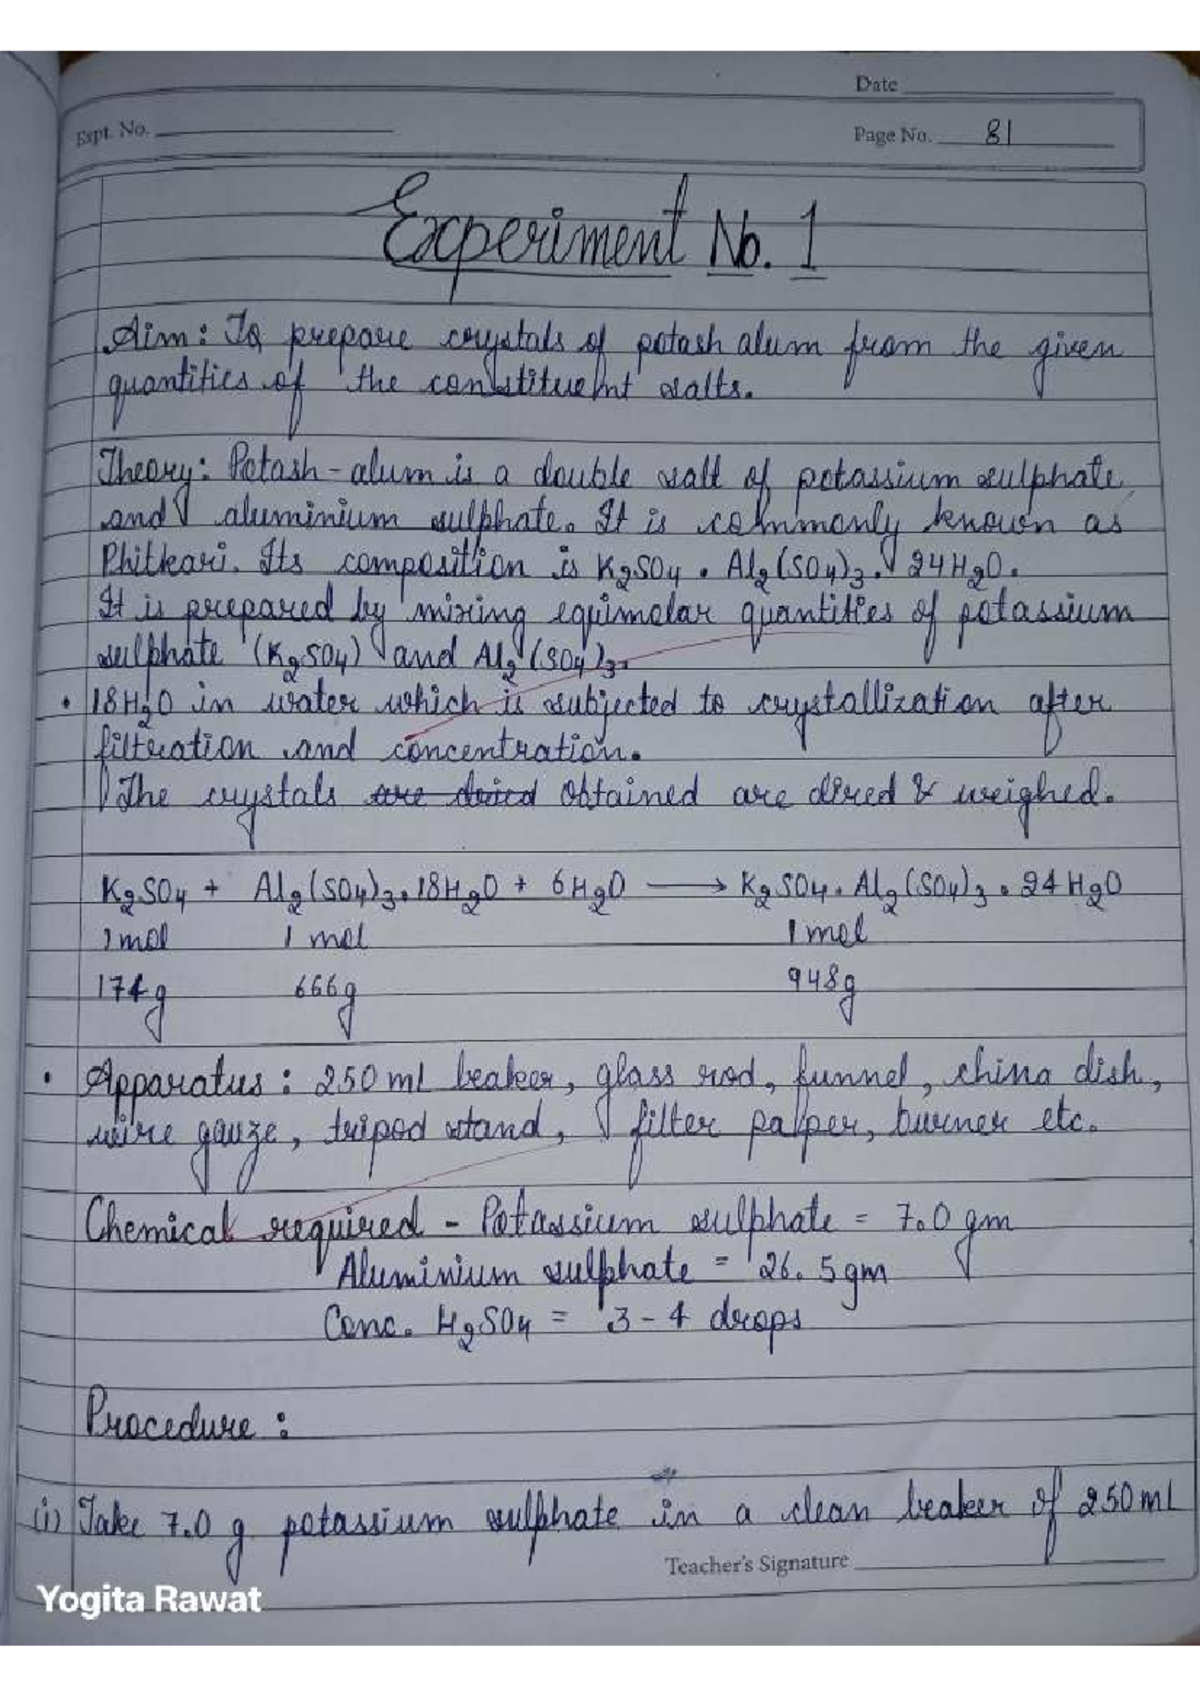 Date
Expt. No.
Page No. 81
Experiment No. 1
Aim: To prepare crystals of potash alum from the given
quantities of the constituent salts.
Theory: Potash-alum is a double salt of potassium sulphate
and aluminium sulphate. It is commonly known as
Phitkari. Its composition is K₂SO₄ . Al₂(SO₄)₃. 24H₂O.
It is prepared by mixing equimolar quantities of potassium
sulphate (K₂SO₄) and Al₂(SO₄)₃.
• 18H₂O in water which is subjected to crystallization after
filtration and concentration.
The crystals are dried obtained are dired & weighed.
K₂SO₄ + Al₂(SO₄)₃.18H₂O + 6H₂O ⟶ K₂SO₄. Al₂(SO₄)₃ . 24H₂O
1 mol 1 mol 1 mol
174g 666g 948g
• Apparatus: 250 ml beaker, glass rod, funnel, china dish,
wire gauze, tripod stand, filter palper, burner etc.
Chemical required - Potassium sulphate = 7.0 gm
Aluminium sulphate = 26.5gm
Conc. H₂SO₄ = 3-4 drops
Procedure:
(i) Take 7.0 g potassium sulphate in a clean beaker of 250 ml
Teacher's Signature
Yogita Rawat